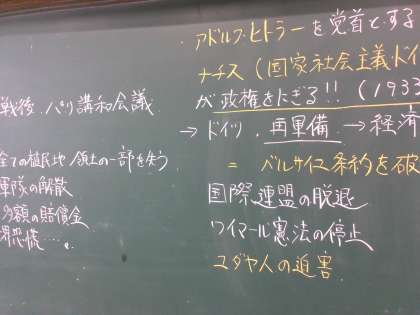 戦後.パリ講和会議
全ての植民地/領土の一部を失う
軍隊の解散
多額の賠償金
界恐慌……。
・アドルフ・ヒトラーを党首とする
ナチス(国家社会主義・ドイ
が政権をにぎる!! (1933
→ドイツ.再軍備→経済
=ベルサイユ条約を破
国際連盟の脱退
ワイマール憲法の停止
ユダヤ人の迫害